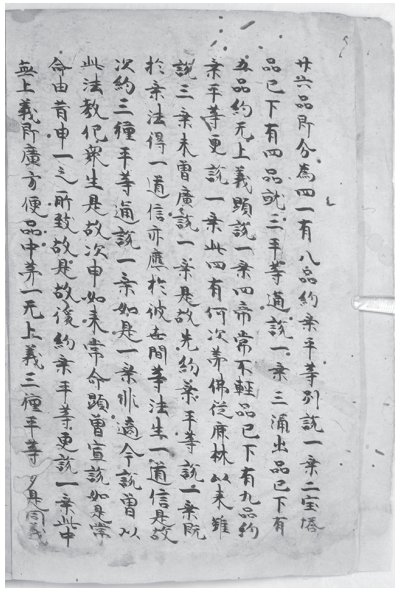 廿六品即分為四一有八品約乗平等別説一乗二宝塔
品已下有四品就三平等通説一乗三涌出品已下有
五品約无上義顕説一乗四常不軽品已下有九品約
乗平等更説一乗此四有何次第佛從鹿林以来雖
説三乗未曽廣説一乗是故先約乗平等説一乗既
於乗法得一道信亦應於彼世間等法生一道信是故
次約三種平等通説一乗如是一乗非適今説曽以
此法教化衆生是故次申如来常命顕曽宣説如是常
命由昔申一之所致故是故後約乗平等更説一乗此中
無上義即廣方便品中第一无上義三種平等